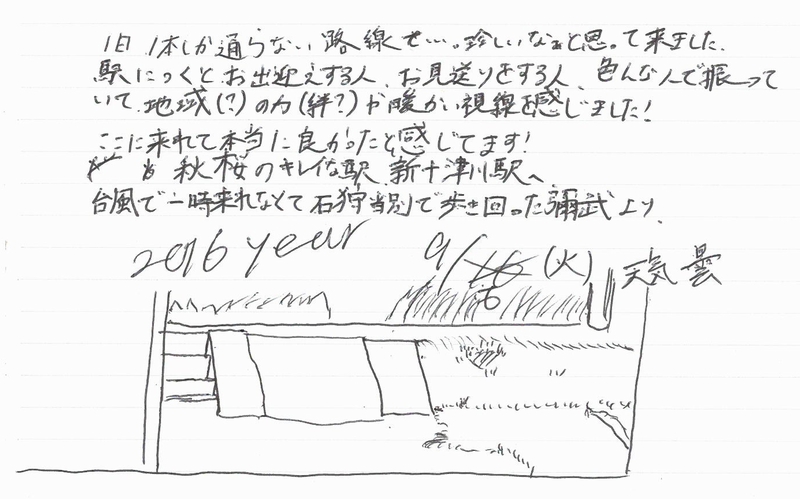 1日1本しか通らない路線で…。珍しいなぁと思って来ました。
駅につくとお出迎えする人、お見送りをする人、色んな人で振って
いて、地域(?)の力(絆?)が暖かい視線を感じました!
ここに来れて本当に良かったと感じてます!
秋桜のキレイな駅 新十津川駅へ
台風で一時来れなくて石狩当別で歩き回った彌武より、
2016 year 9/6 (火) 天気 曇